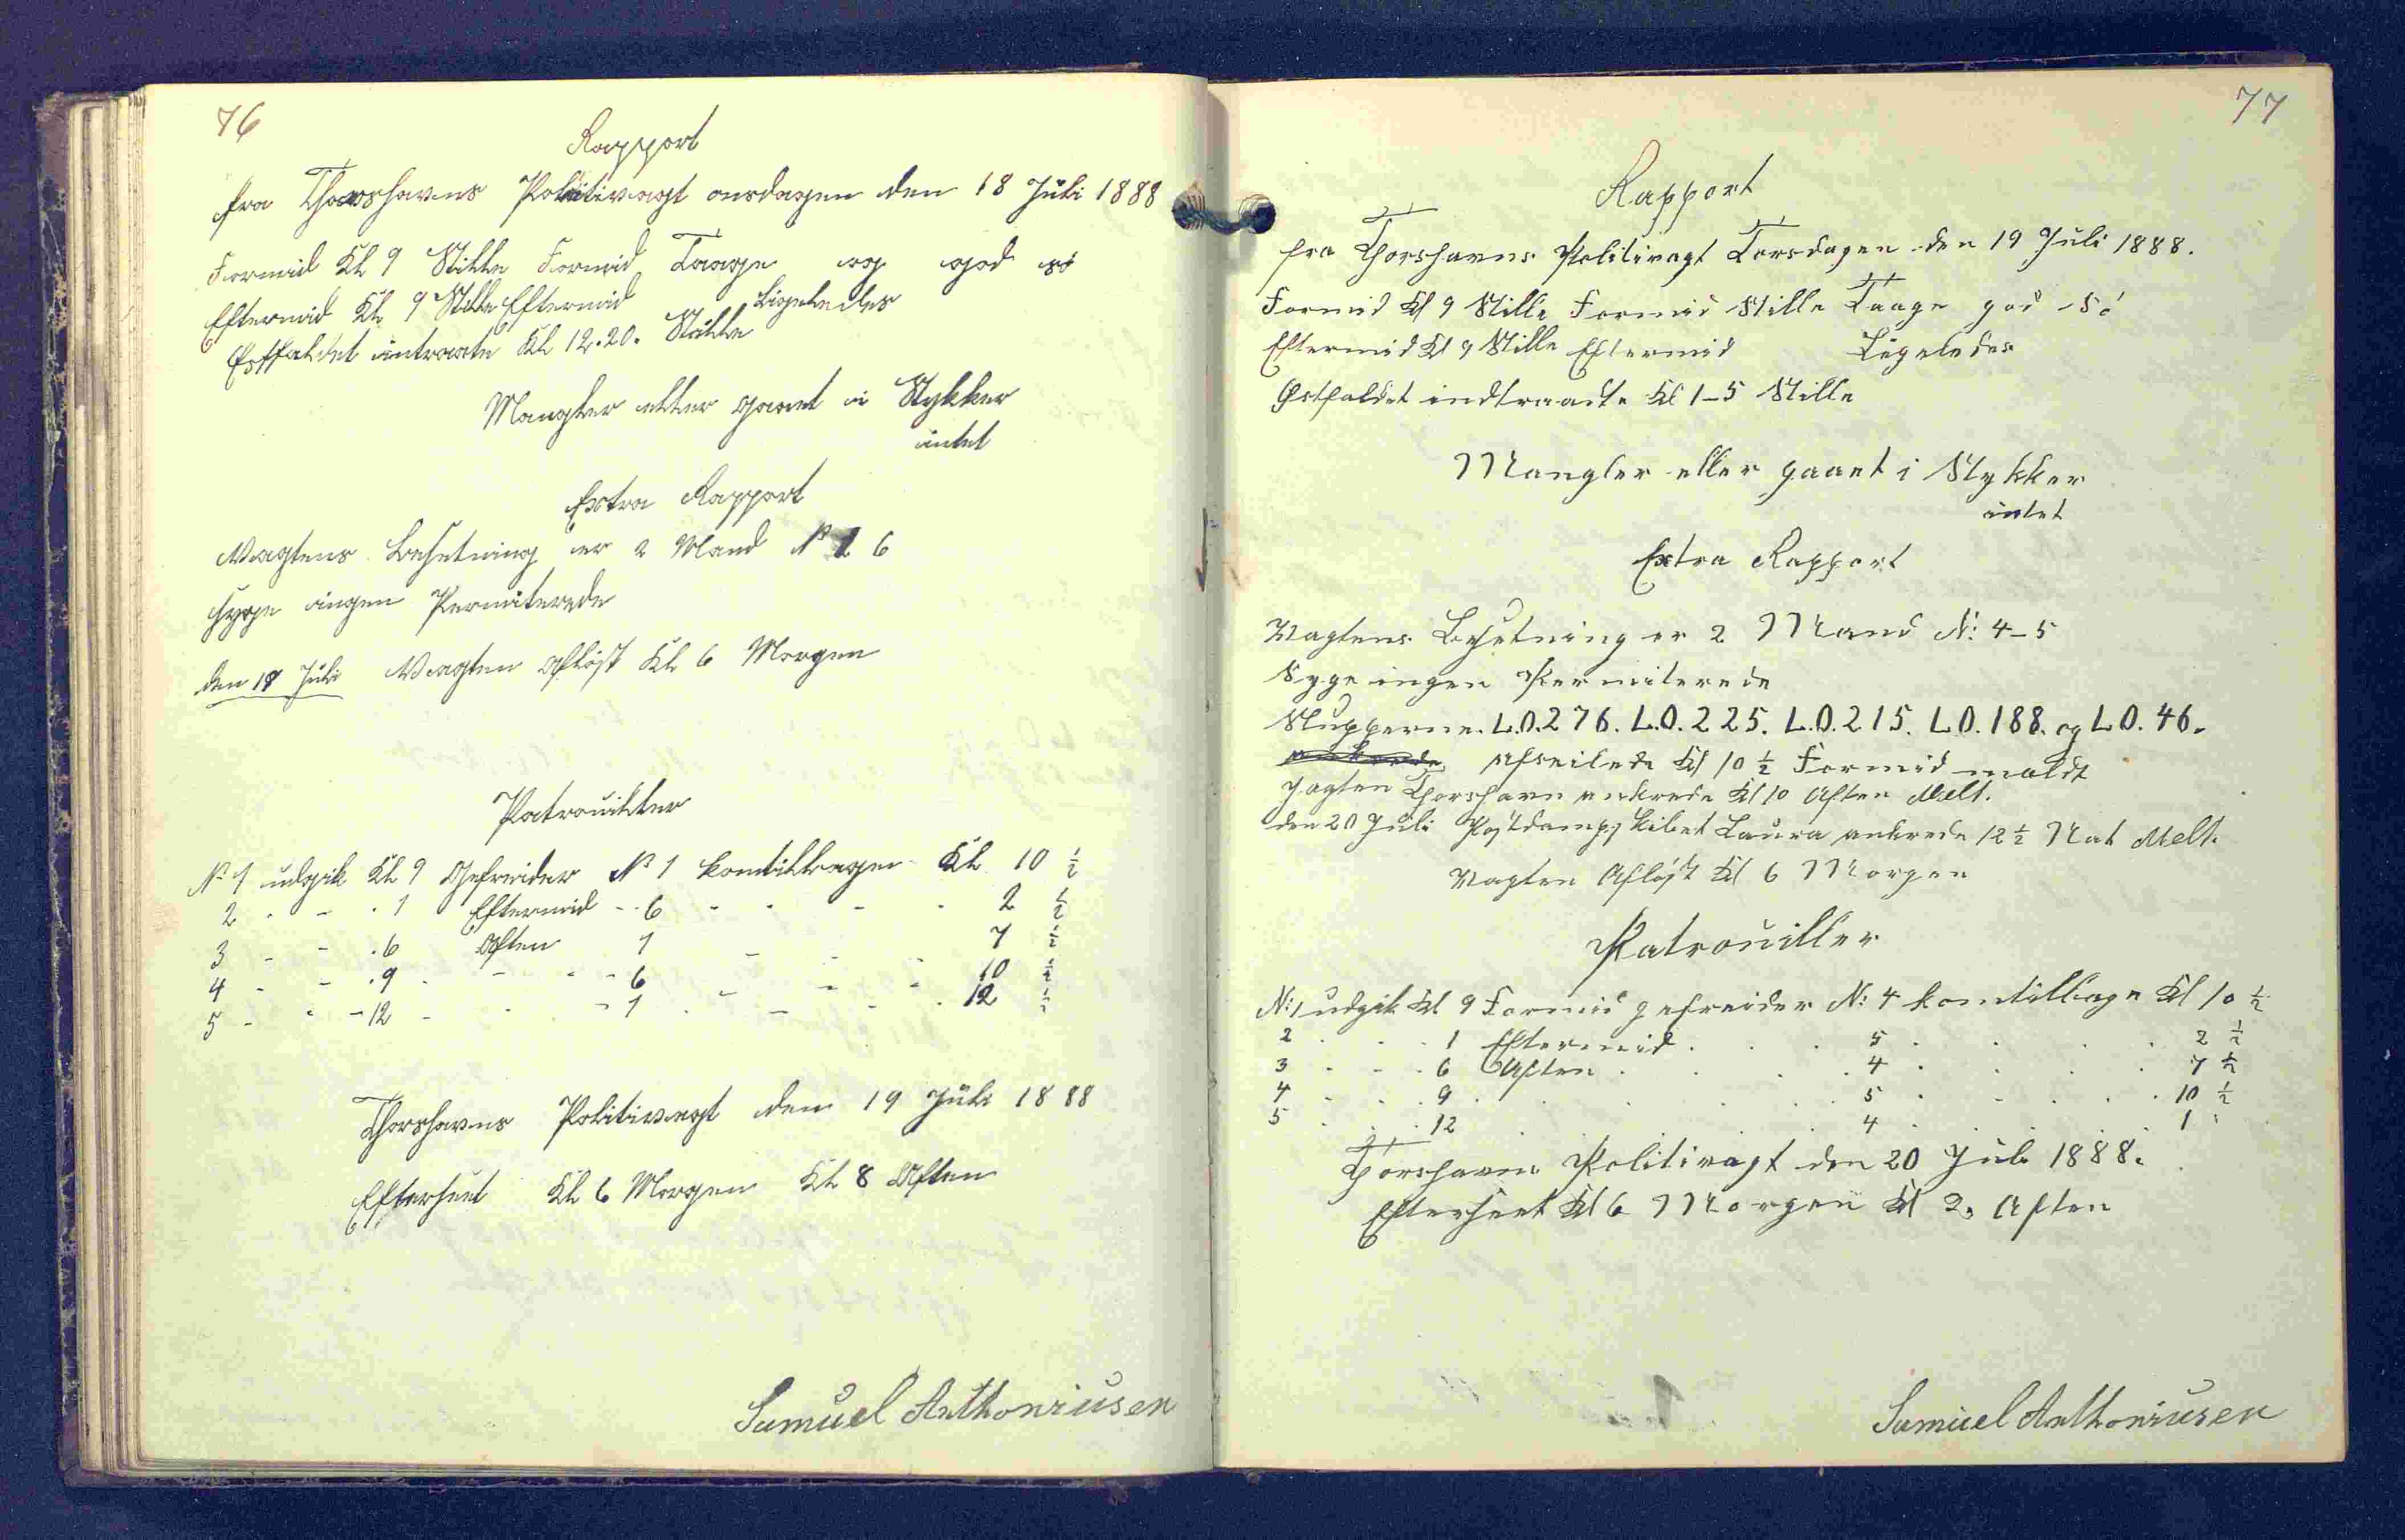 76
Rapport
fra Thorshavns Politivagt onsdagen den 18 Juli 1888
Formid Kl 9 Stille Formid Taage og god sö
Eftermid Kl 9 Stille Eftermid Ligeledes
Østfaldet intraate Kl 12.20. Stille
Mangler eller gaaet i Stykker
intet
Extra Rapport
Vagtens Besetning er 2 Mand No 1 6
syge ingen Permiterede
den 19 Juli Vagten Afløst Kl 6 Morgen
Patrouiller
No 1 udgik Kl 9 Gefreider No 1 komtilbage Kl 10 ½
2 - - . 1 Eftermid - 6 - - - - 2 ½
3 - - . 6 Aften 1 - - - 7 ½
4 - - . 9 - - - 6 - - - 10 ½
5 - - - 12 - - - 1 - - - 12 ½
Thorshavns Politivagt den 19 Juli 1888
Efterseet Kl 6 Morgen Kl 8 Aften
Samuel Anthoniusen
77
Rapport
fra Thorshavns Politivagt Torsdagen den 19 Juli 1888.
Formid Kl 9 Stille Formid Stille Taage god Sö
Eftermid Kl 9 Stille Eftermid Ligeledes
Østfaldet indtraadte Kl 1-5 Stille
Mangler eller gaaet i Stykker
intet
Extra Rapport
Vagtens Besetning er 2 Mand N: 4-5
Syge ingen Permiterede
Slupperne. L.O.276. L.O.225. L.O.215. LO.188. og LO.46.
ankrede Afseilede Kl 10 ½ Formid meldt
Jagten Thorshavn ankrede Kl 10 Aften Melt.
den 20 Juli Postdampskibet Laura ankrede 12 ½ Nat Melt.
Vagten Afløst Kl 6 Morgen
Patrouiller
N: 1 udgik Kl 9 Formid gefreider N: 4 komtilbage Kl 10 ½
2 . . . 1 Eftermid . . 5 . . . . 2 ½
3 - - . 6 Aften . . . 4 . . . . 7 ½
4 - . . 9 . . . . 5 . . . . 10 ½
5 . . . 12 . . . . 4 . . . . 1 :
Thorshavns Politivagt den 20 Juli 1888.
Efterseet Kl 6 Morgen Kl 2. Aften
Samuel Anthoniusen